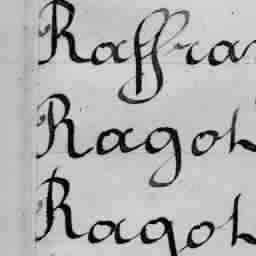 Raffra
Ragot
Ragot